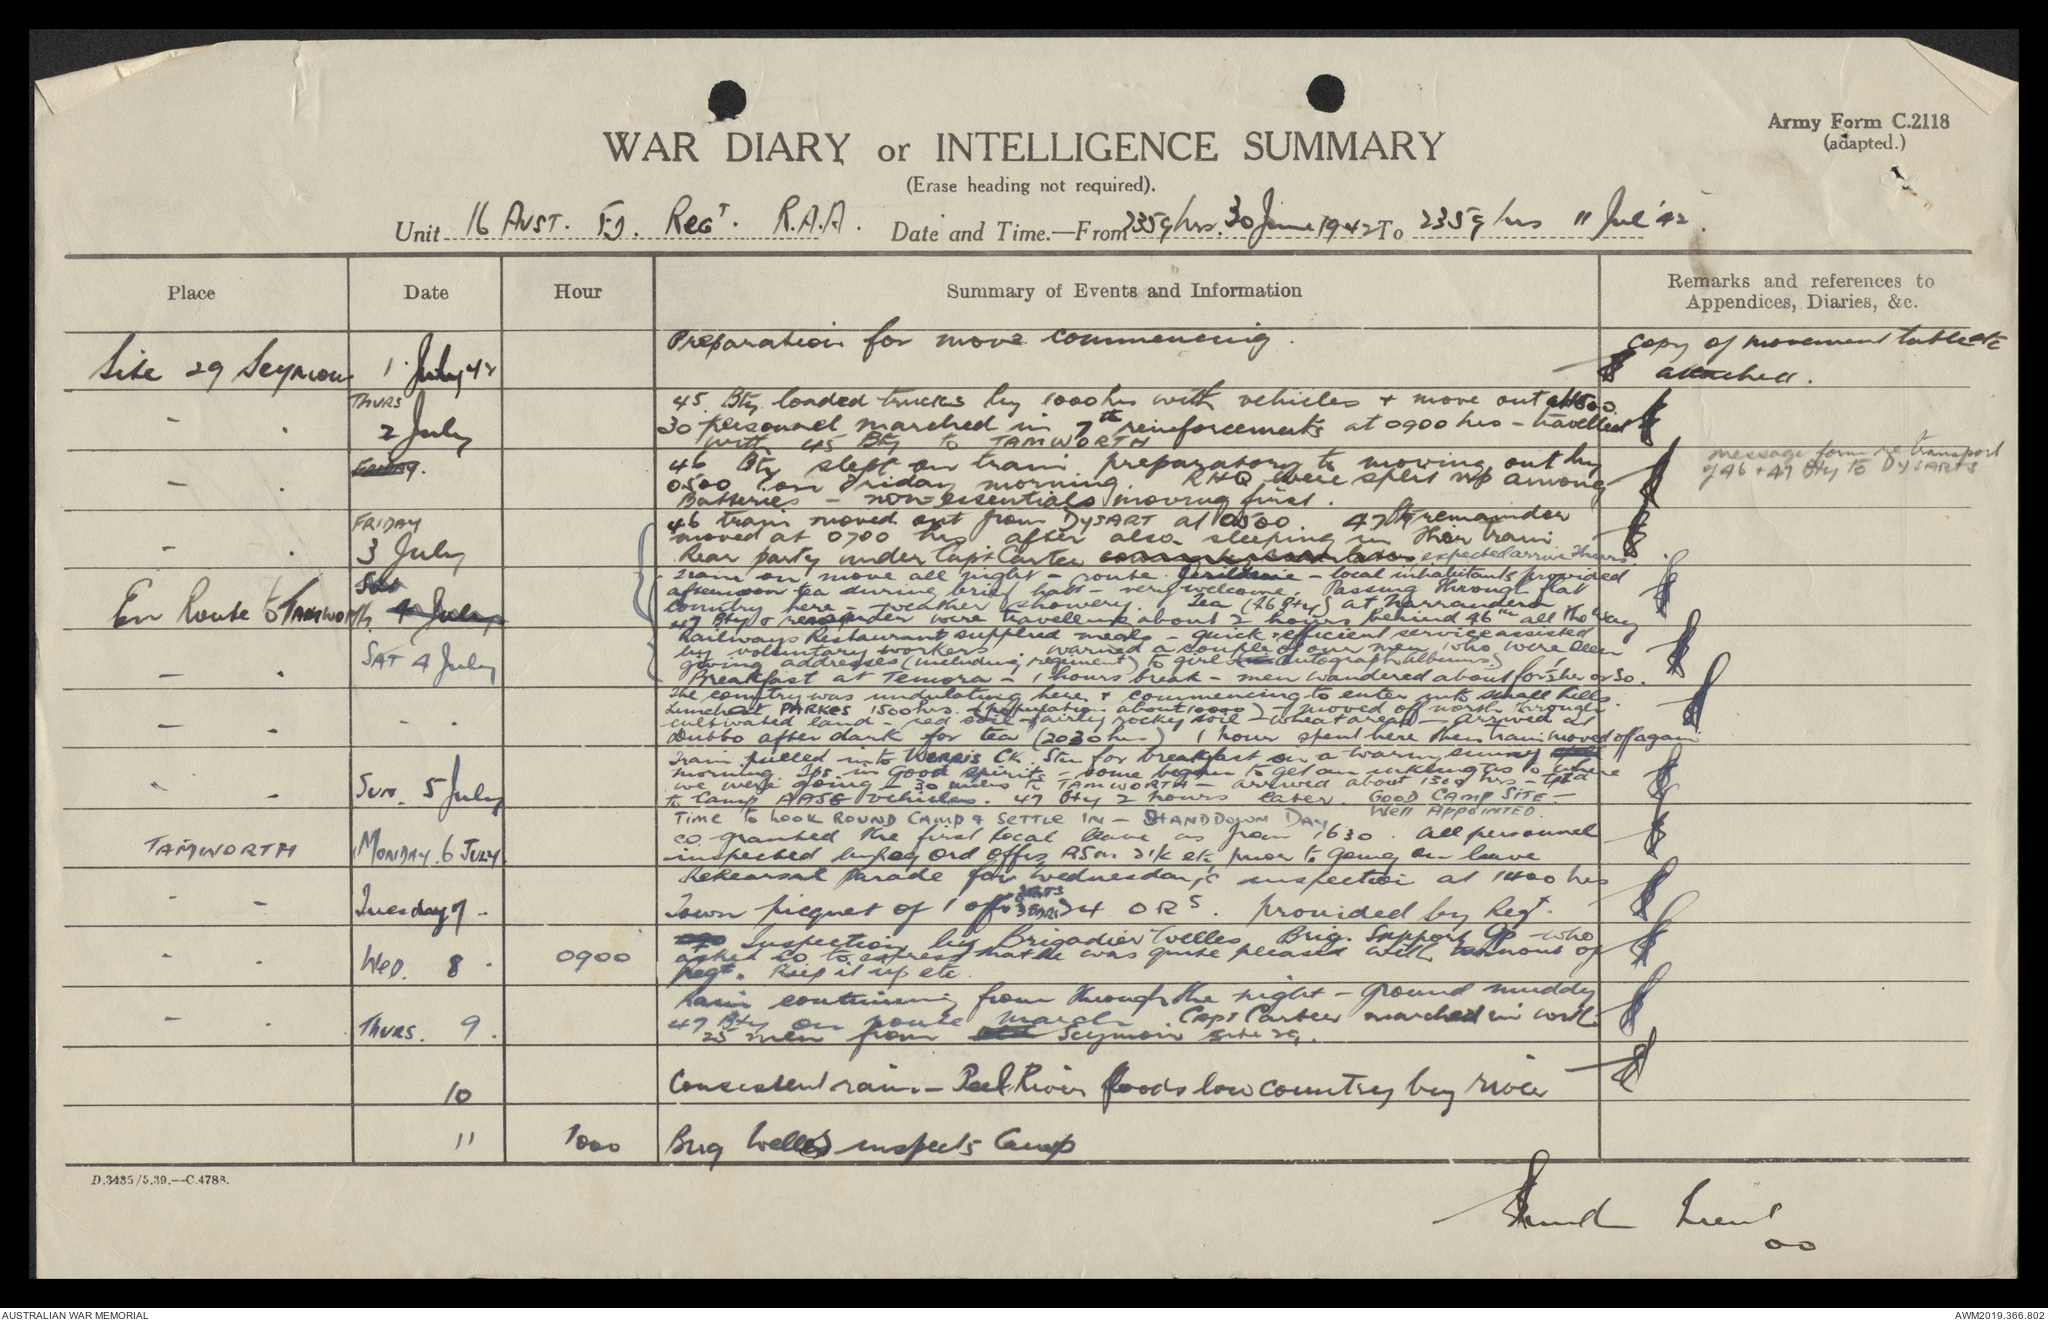 Army Form C.2118
(adapted.)
WAR DIARY or INTELLIGENCE SUMMARY
(Erase heading not required).
Unit 16 AUST. FD. REGT. R.A.A. Date and Time.—From 2359 hrs. 30 June 1942 To 2359 hrs 11 Jul '42.
Place Date Hour Summary of Events and Information Remarks and references to Appendices, Diaries, &c.
Site 29 Seymour 1 July 42 Preparation for move commencing. Copy of movement table etc
attached.
THURS
2 July
45 Bty loaded trucks by 1000 hrs with vehicles + move out at 1500.
30 personnel marched in 7th reinforcements at 0900 hrs - travelled
with 45 Bty to TAMWORTH
46 Bty slept on train preparatory to moving out by
0500 on Friday morning. RHQ were split up among
Batteries - non-essentials moving first.
message form re transport
of 46 + 47 Bty to DYSARTS
FRIDAY
3 July
46 train moved out from DYSART at 0500. 47 & remainder
moved at 0700 hrs after also sleeping in their train
Rear party under Capt Carter expected arrive Thurs.
En Route to TAMWORTH 4 July
Train on move all night - route Jerilderie - local inhabitants provided
afternoon tea during brief halt - very welcome. Passing through flat
country here - weather showery. Tea (46 Bty) at Narrandera
47 Bty & remainder were travelling about 2 hours behind 46th all the way
SAT 4 July
Railways Restaurant supplied meals - quick & efficient service assisted
by voluntary workers. Warned a couple of our men who were seen
giving addresses (including regiment) to girl autograph albums)
Breakfast at Temora - 1 hours break - men wandered about for 1 hr or so.
The country was undulating here & commencing to enter into small hills.
Lunch at PARKES 1500 hrs. (population about 10000) - moved off north through
cultivated land - red soil - fairly rocky soil - wheat area - arrived at
Dubbo after dark for tea (2030 hrs) 1 hour spent here then train moved off again
SUN. 5 July
Train pulled into WERRIS CK. Stn for breakfast on a warm sunny
morning. Tps in good spirits - some began to get an inkling as to where
we were going - 30 miles to TAMWORTH - arrived about 1300 hrs -
to Camp AASC vehicles. 47 Bty 2 hours later. GOOD CAMP SITE -
WELL APPOINTED.
TAMWORTH MONDAY. 6 JULY.
TIME TO LOOK ROUND CAMP & SETTLE IN - STAND DOWN DAY
CO granted the first local leave as from 1630. All personnel
inspected by Ord offr, RSM etc prior to going on leave
Tuesday 7
Rehearsal parade for Wednesday's inspection at 1400 hrs
Town picquet of 1 off. 24 ORs. provided by Regt.
WED. 8 0900
Inspection by Brigadier Welles Brig. Support Gp - who
asked CO to express that he was quite pleased with turnout of
Regt. Keep it up etc.
THURS. 9.
Rain continuing from through the night - ground muddy
47 Bty on route march. Capt Carter marched in with
25 men from Seymour site 29.
10 Consistent rain - Peel River floods low country by river
11 1000 Brig Welles inspects Camp
D.3435/5.39.—C.4788.
Lieut
AUSTRALIAN WAR MEMORIAL
AWM2019.366.802